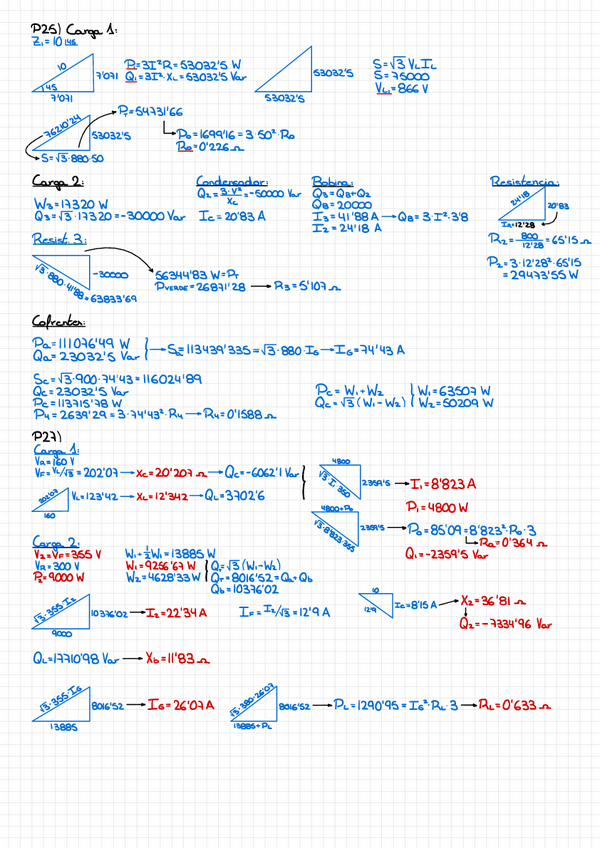 P25) Carga 1:
Z₁=10 ∠45
10
45
7'071
7'071
P₁=3I²R=53032'5 W
Q₁=3I²·X_L=53032'5 Var
53032'5
53032'5
S=√3 V_L I_L
S=75000
V_L₁=866 V
76210'24
53032'5
S=√3·880·50
P_T=54731'66
P₀=1699'16=3·50²·R₀
R₀=0'226 Ω
Carga 2:
W₃=17320 W
Q₃=√3·17320=-30000 Var
Condensador:
Q₂=3·V²/X_C=-50000 Var
I_C=20'83 A
Bobina:
Q₃=Q_B+Q₂
Q_B=20000
I₃=41'88 A → Q_B=3·I²·3'8
I₂=24'18 A
Resistencia:
24'18
20'83
I_R=12'28
R₂=800/12'28=65'15 Ω
P₂=3·12'28²·65'15
=29473'55 W
Resist. 3:
-30000
√3·880·41'88=63833'69
56344'83 W=P_T
P_VERDE=26871'28 → R₃=5'107 Ω
Cofrentes:
P_a=111076'49 W
Q_a=23032'5 Var
S_a=113439'335=√3·880·I_G → I_G=74'43 A
S_C=√3·900·74'43=116024'89
Q_C=23032'5 Var
P_C=113715'78 W
P₄=2639'29=3·74'43²·R₄ → R₄=0'1588 Ω
P_C=W₁+W₂
Q_C=√3(W₁-W₂)
W₁=63507 W
W₂=50209 W
P27)
Carga 1:
V_R=160 V
V_F=V_L/√3=202'07 → X_C=20'207 Ω → Q_C=-6062'1 Var
202'07
160
V_L=123'42 → X_L=12'342 → Q_L=3702'6
4800
√3·I₁·350
2359'5
I₁=8'823 A
P₁=4800 W
4800+P₀
√3·8'823·355
2359'5
P₀=85'09=8'823²·R₀·3
R₀=0'364 Ω
Q₁=-2359'5 Var
Carga 2:
V₂=V_F=355 V
V_R=300 V
P₂=9000 W
W₁+½W₁=13885 W
W₁=9256'67 W
W₂=4628'33 W
Q=√3(W₁-W₂)
Q_T=8016'52=Q_a+Q_b
Q_b=10376'02
√3·355·I₂
10376'02
9000
I₂=22'34 A
I_F=I₂/√3=12'9 A
10
12'9
I_C=8'15 A
X₂=36'81 Ω
Q₂=-7334'96 Var
Q_L=17710'98 Var → X_b=11'83 Ω
√3·355·I_G
8016'52
13885
I_G=26'07 A
√3·380·26'07
8016'52
13885+P_L
P_L=1290'95=I_G²·R_L·3 → R_L=0'633 Ω